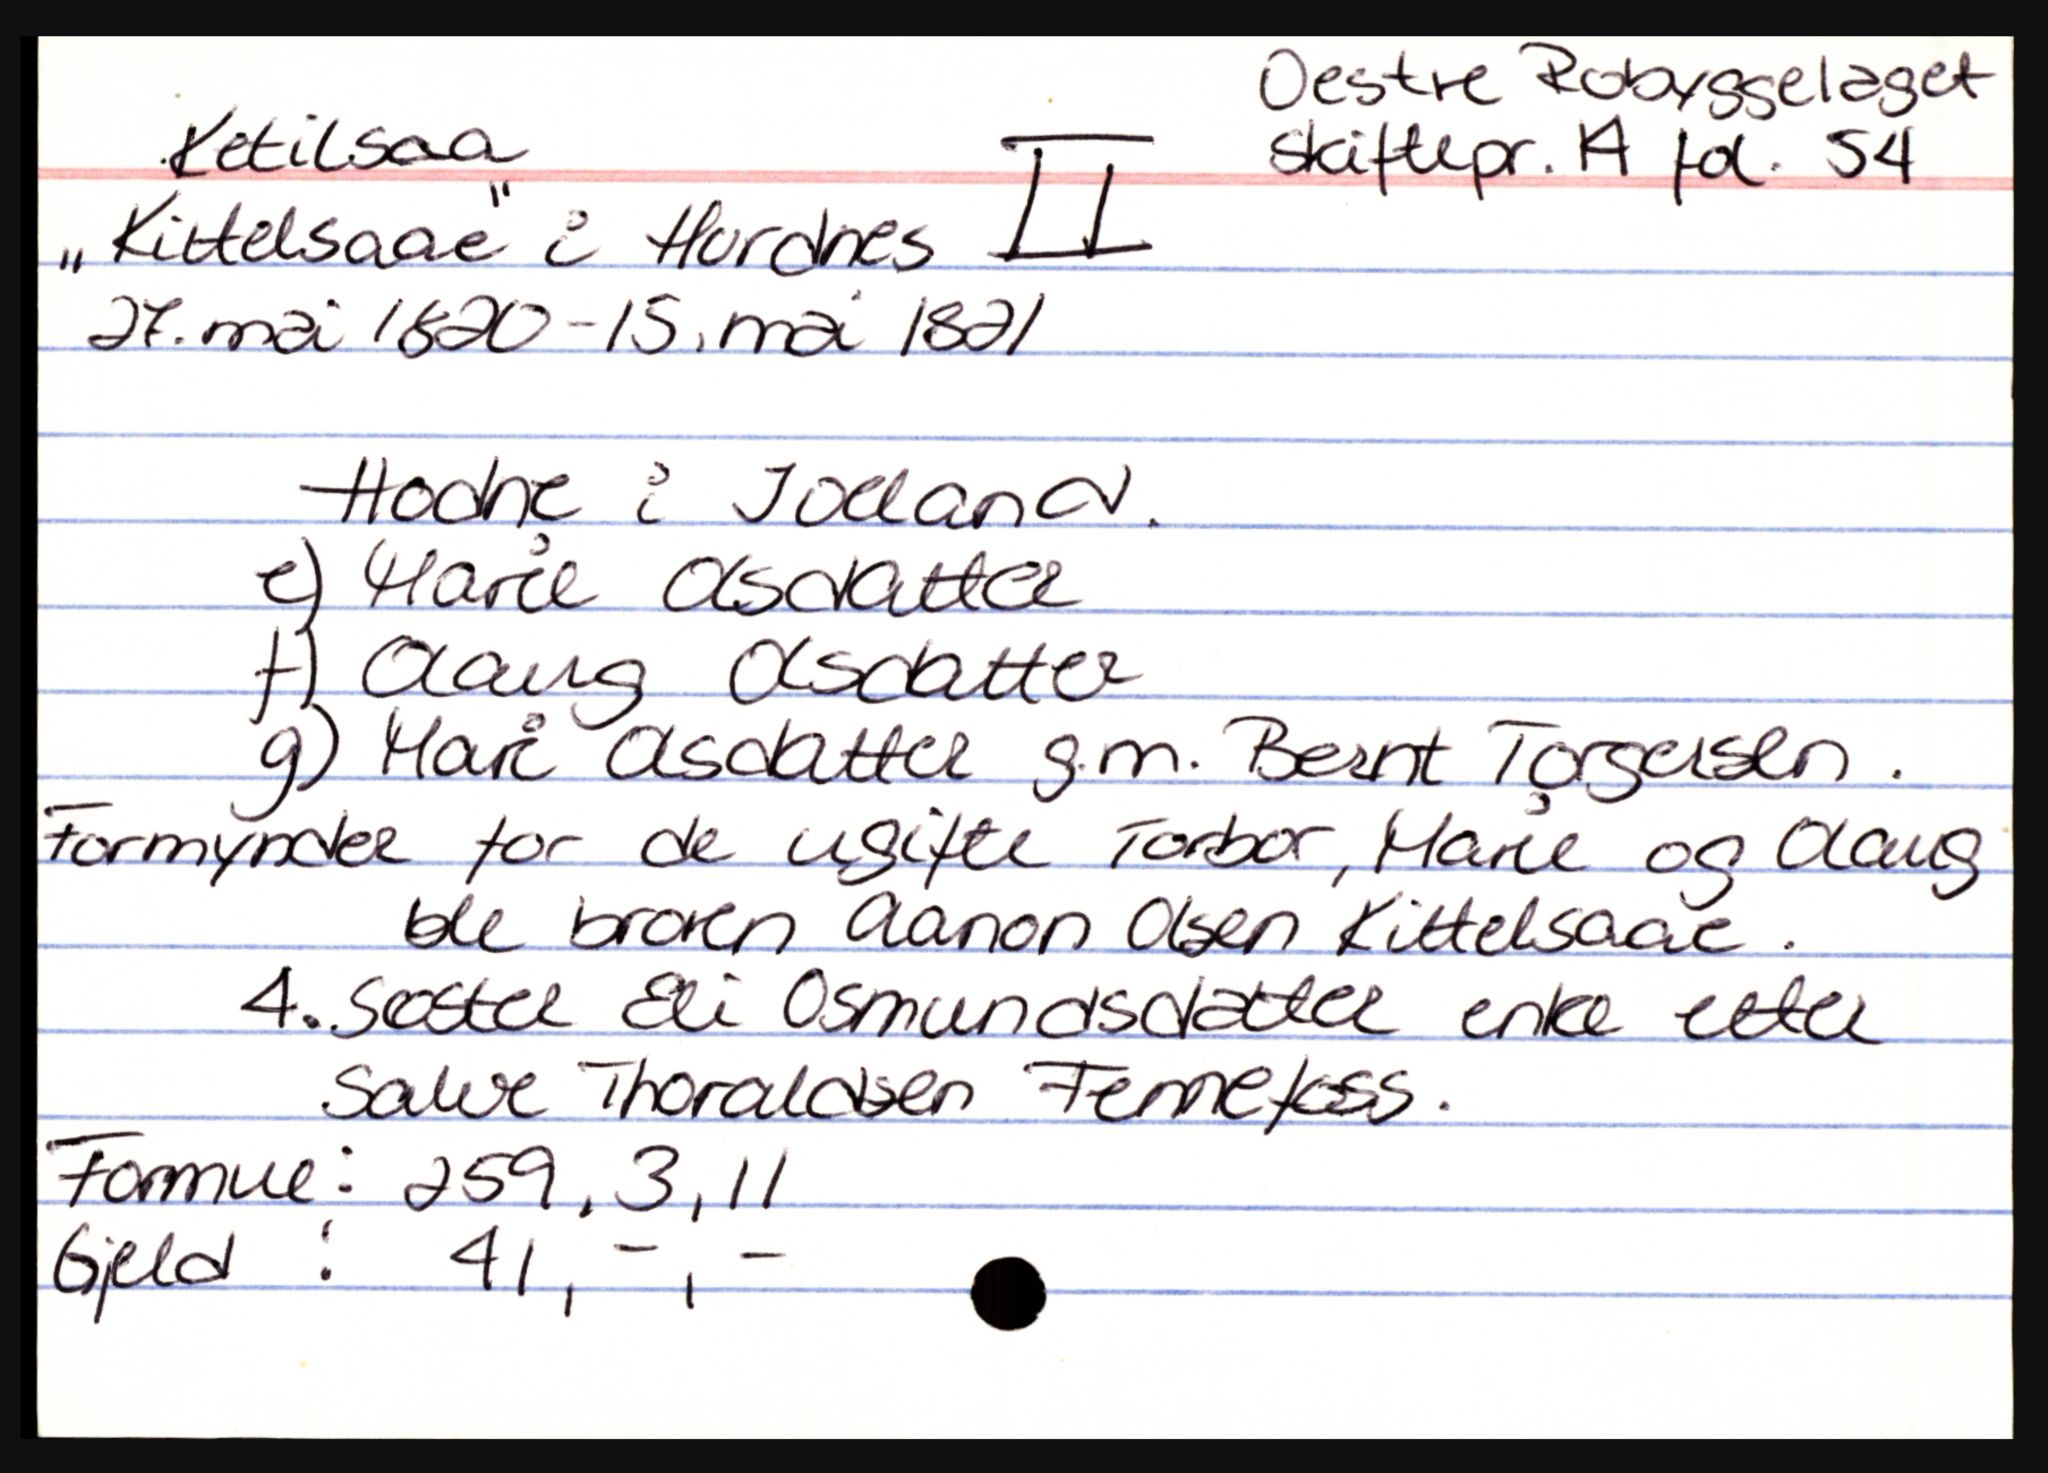 Oestre Robyggelaget
Ketilsaa II skiftepr. A fol. 54
„Kittelsaae" i Hordnes
27. mai 1820 - 15. mai 1821
Hodne i Joeland.
e) Marie Olsdatter
f) Olaug Olsdatter
g) Mari Olsdatter g.m. Bernt Torgersen.
Formynder for de ugifte Torbor, Marie og Olaug
ble broren Aanon Olsen Kittelsaae.
4. Søster Eli Osmundsdatter enke etter
Salve Thoraldsen Fennefoss.
Formue: 259, 3, 11
Gjeld : 41, -, -